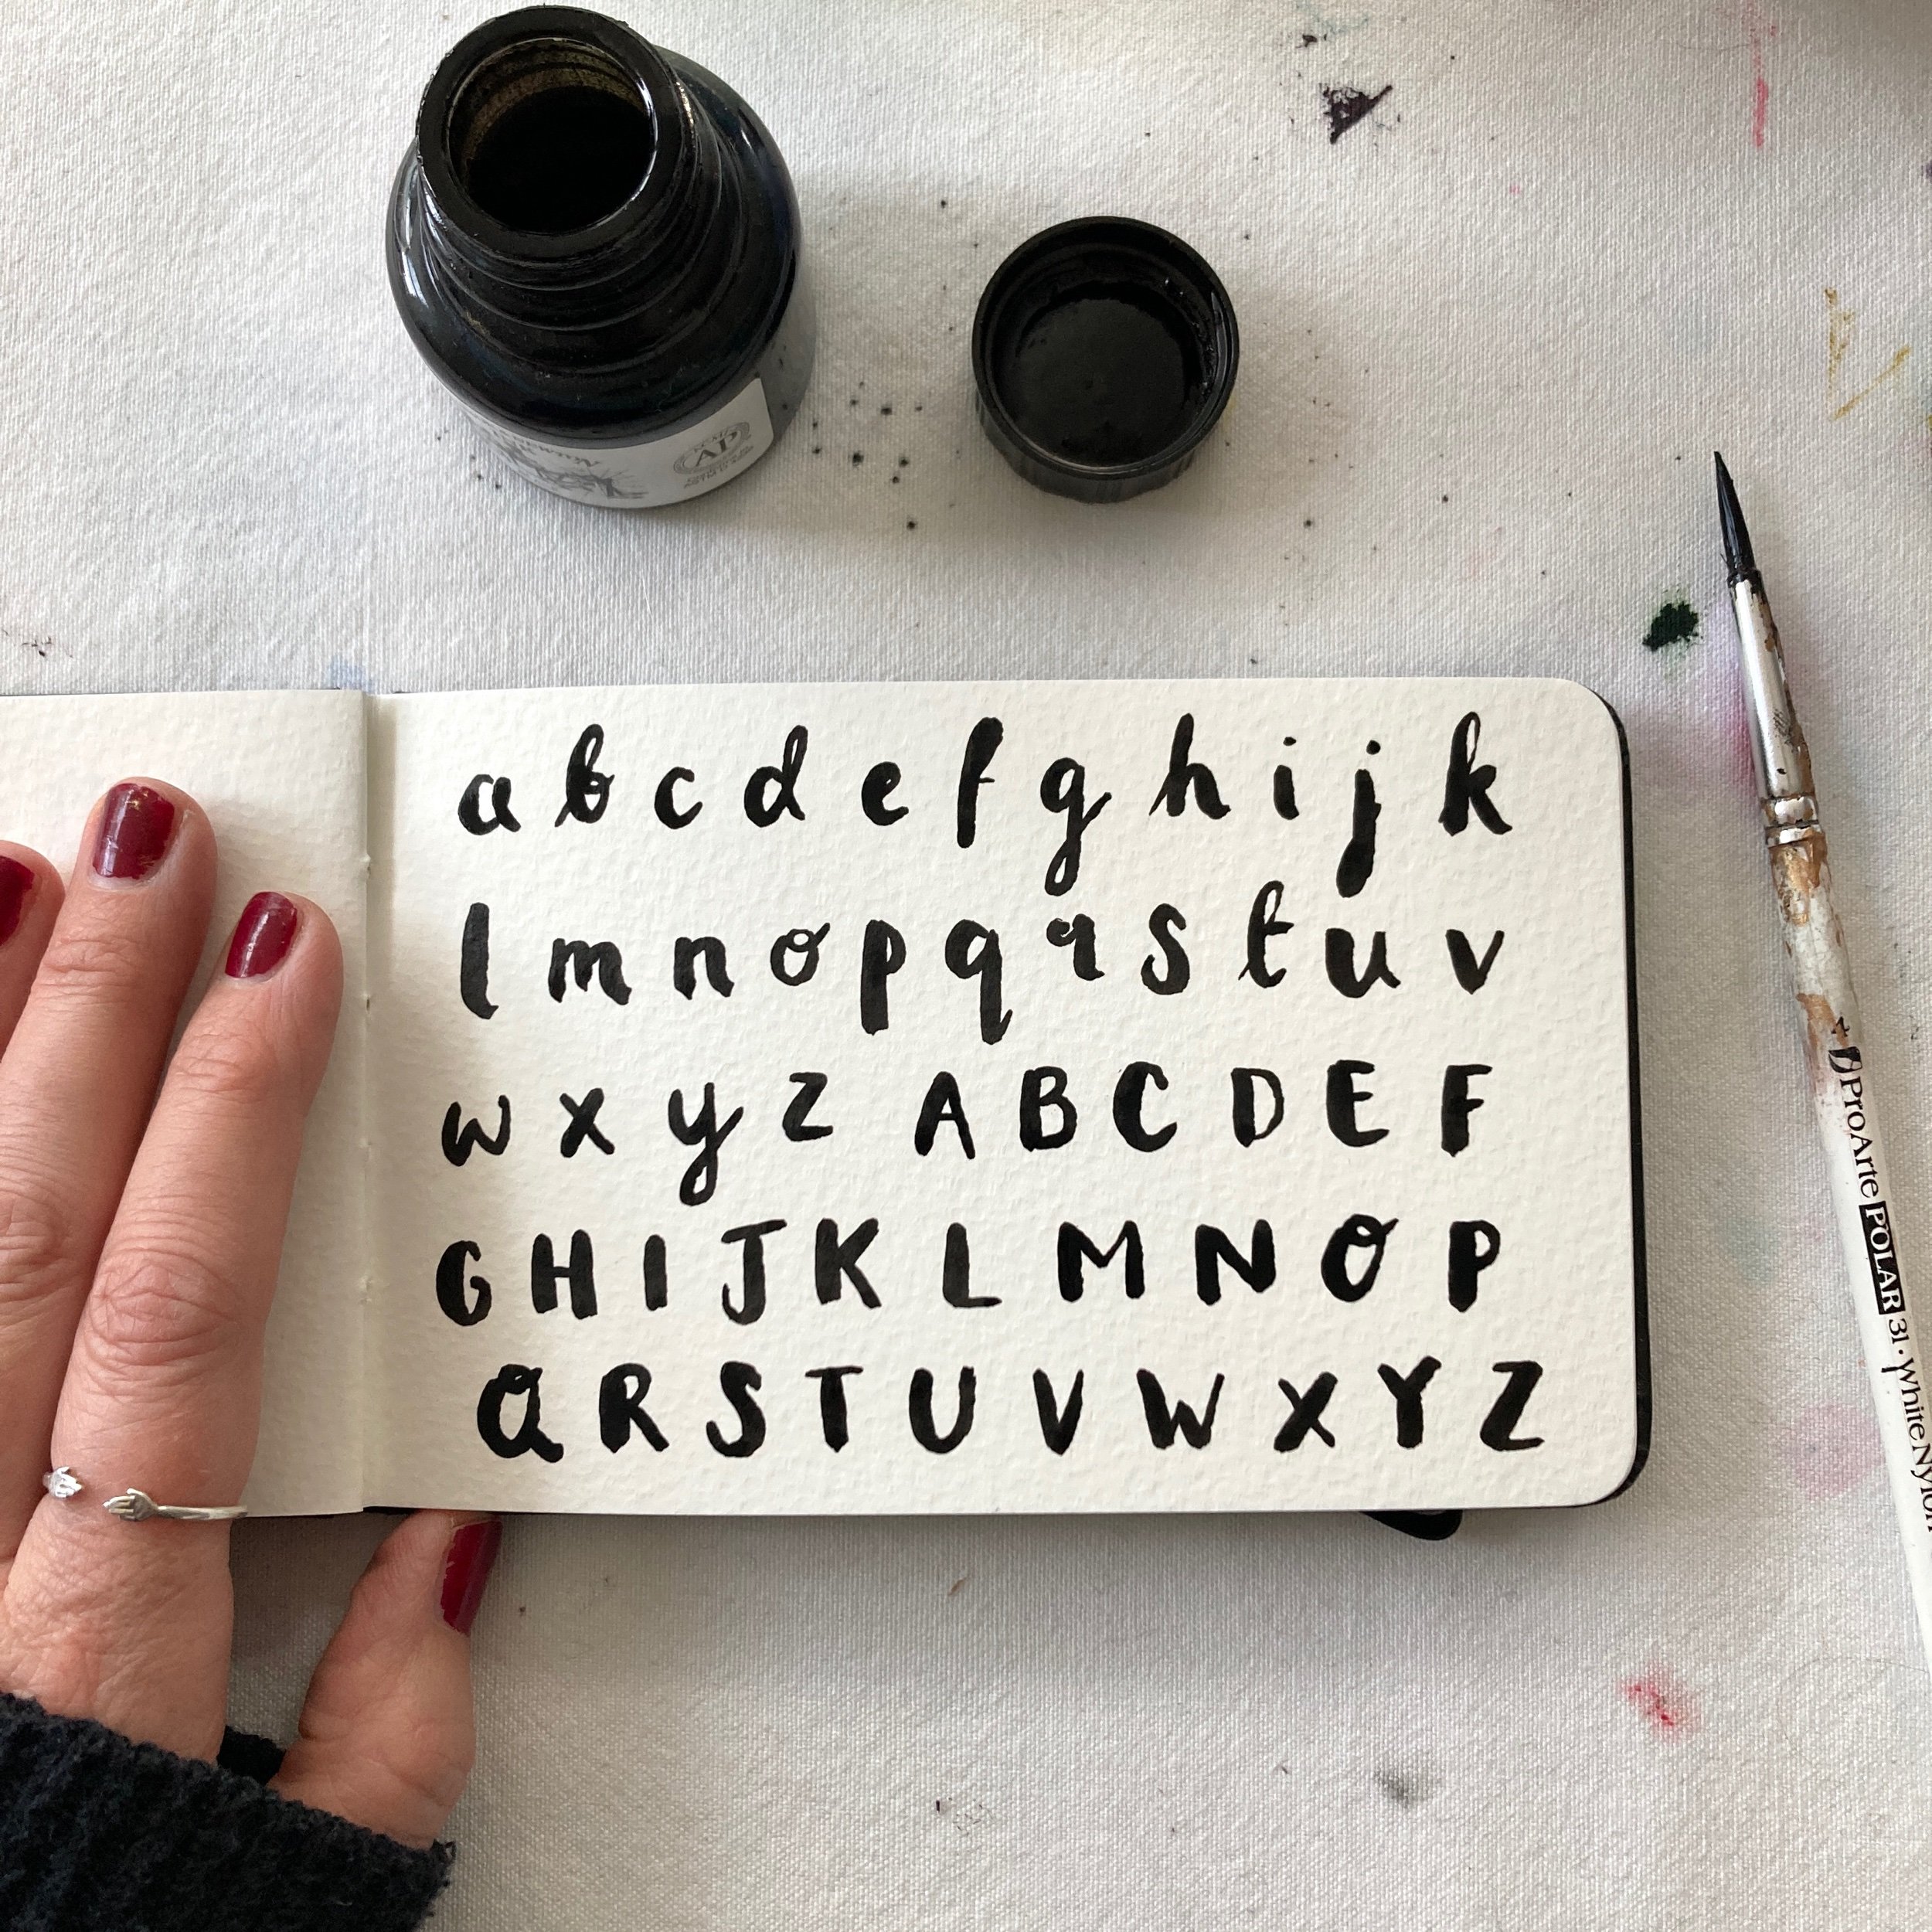 a b c d e f g h i j k
l m n o p q r s t u v
w x y z A B C D E F
G H I J K L M N O P
Q R S T U V W X Y Z
4 ProArte POLAR 31 · White Nylon
AP